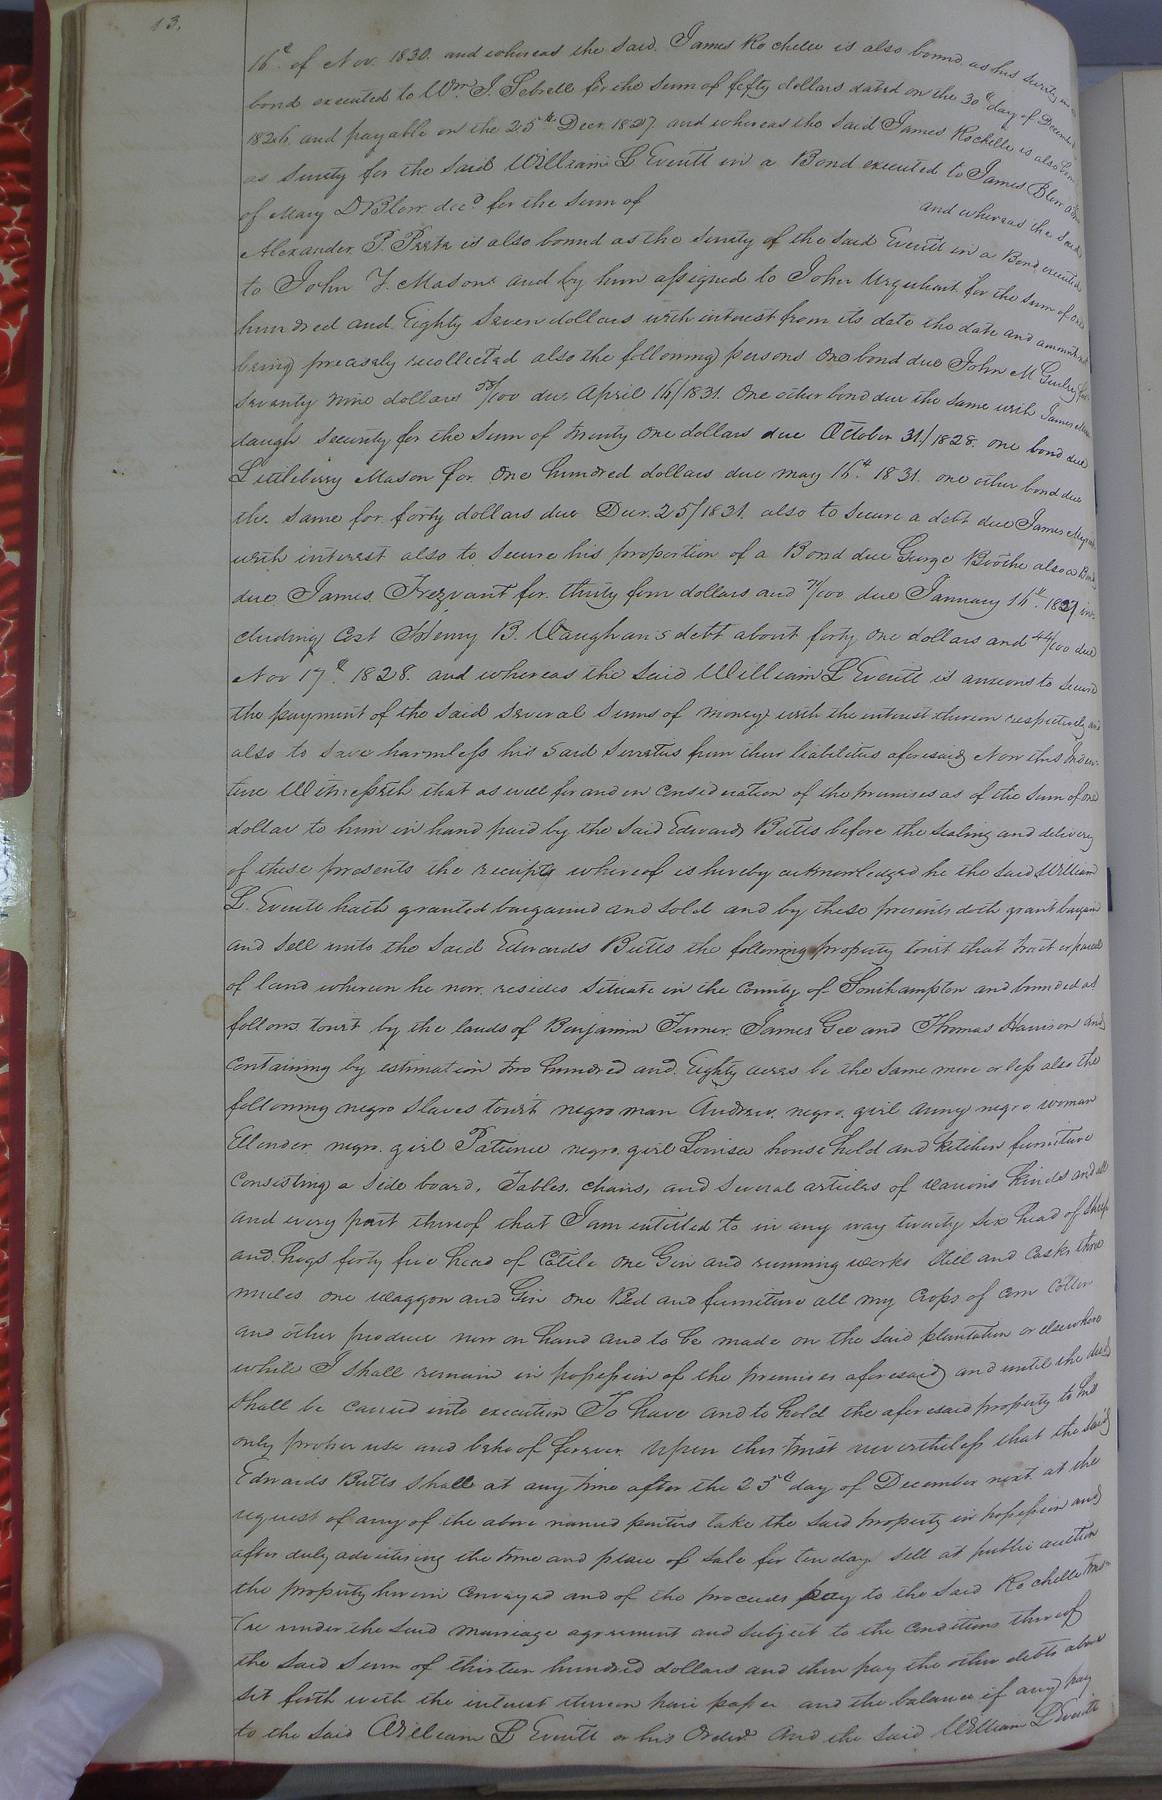 13.
16th of Nov. 1830. and whereas the said James Rochelle is also bound as his surety in a
bond executed to Wm. J. Sebrell for the sum of fifty dollars dated on the 30th day of December
1826 and payable on the 25th Decr. 1827. and whereas the said James Rochelle is also bound
as surety for the said William L Everitt in a Bond executed to James Blow
of Mary D Blow decd. for the sum of and whereas the said
Alexander P. Peete is also bound as the surety of the said Everitt in a Bond executed
to John Y. Mason and by him assigned to John Urquhart for the sum of one
hundred and Eighty Seven dollars with interest from its date the date and amount not
being precisely recollected also the following persons one bond due John M Gurley for
seventy nine dollars 58/100 due April 16/1831. One other bond due the same with James
daugh security for the sum of twenty one dollars due October 31/1828. one bond due
Littleberry Mason for One hundred dollars due may 16th. 1831. one other bond due
the same for forty dollars due Decr. 25/1831. also to secure a debt due James
with interest also to secure his proportion of a Bond due George Boothe also a Bond
due James Trezvant for thirty four dollars and 71/100 due January 16th. 1829 in-
cluding Cost Henry B. Vaughan's debt about forty one dollars and 44/100 due
Nov 17th. 1828. and whereas the said William L Everitt is anxious to secure
the payment of the said several sums of money with the interest thereon respectively and
also to save harmless his said sureties from their liabilities aforesaid Now this Inden-
ture Witnesseth that as well for and in consideration of the premises as of the sum of one
dollar to him in hand paid by the said Edwards Butts before the sealing and delivery
of these presents the receipt whereof is hereby acknowledged he the said William
L. Everitt hath granted bargained and sold and by these presents doth grant bargain
and sell unto the said Edwards Butts the following property towit that tract or parcel
of land whereon he now resides situate in the County of Southampton and bounded as
follows towit by the lands of Benjamin Turner, James Gee and Thomas Harrison and
containing by estimation two hundred and Eighty acres be the same more or less also the
following negro slaves towit negro man Andrew, negro girl Anny negro woman
Ellender negro girl Patience negro girl Louisa house hold and kitchen furniture
Consisting a side board, Tables, chairs, and several articles of various kinds and all
and every part thereof that I am intitled to in any way twenty six head of sheep
and hogs forty five head of Cattle one Gin and running works Still and Casks three
mules one waggon and Gin One Bed and furniture all my Crops of corn Cotton
and other produce now on hand and to be made on the said plantation or elsewhere
while I shall remain in possession of the premises aforesaid and until the deed
shall be carried into execution To have and to hold the aforesaid property to his
only proper use and behoof forever. Upon this trust nevertheless that the said
Edwards Butts shall at any time after the 25th day of December next at the
request of any of the above named parties take the said property in possession and
after duly advertising the time and place of sale for ten days sell at public auction
the property herein conveyed and of the proceeds pay to the said Rochelle trus-
tee under the said marriage agreement and subject to the conditions thereof
the said sum of thirteen hundred dollars and then pay the other debts above
set forth with the interest thereon pari passu and the balance if any pay
to the said William L Everitt or his Order And the said William L Everitt